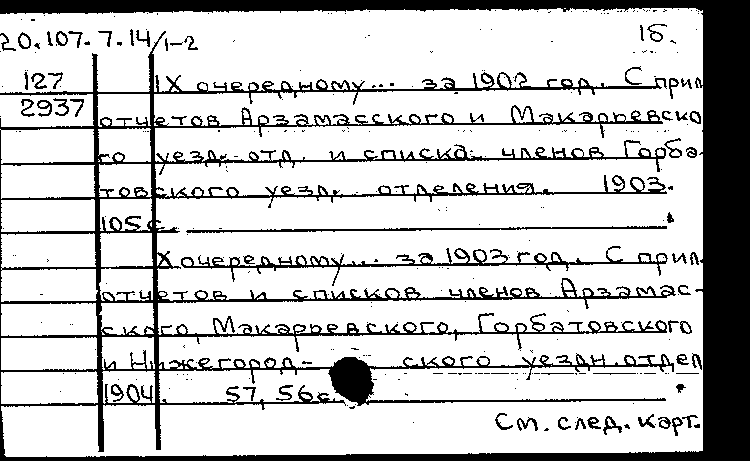 20.107.7.14/1-2 1б.
127 IX очередному... за 1902 год. С прил
2937 отчетов Арзамасского и Макарьевско
го уезд. отд. и списка членов Горба-
товского уезд. отделения. 1903.
105 с.
X очередному... за 1903 год. С прил.
отчетов и списков членов Арзамас-
ского, Макарьевского, Горбатовского
и Нижегород- ского уездн. отдел
1904. 57, 56 с.
См. след. карт.